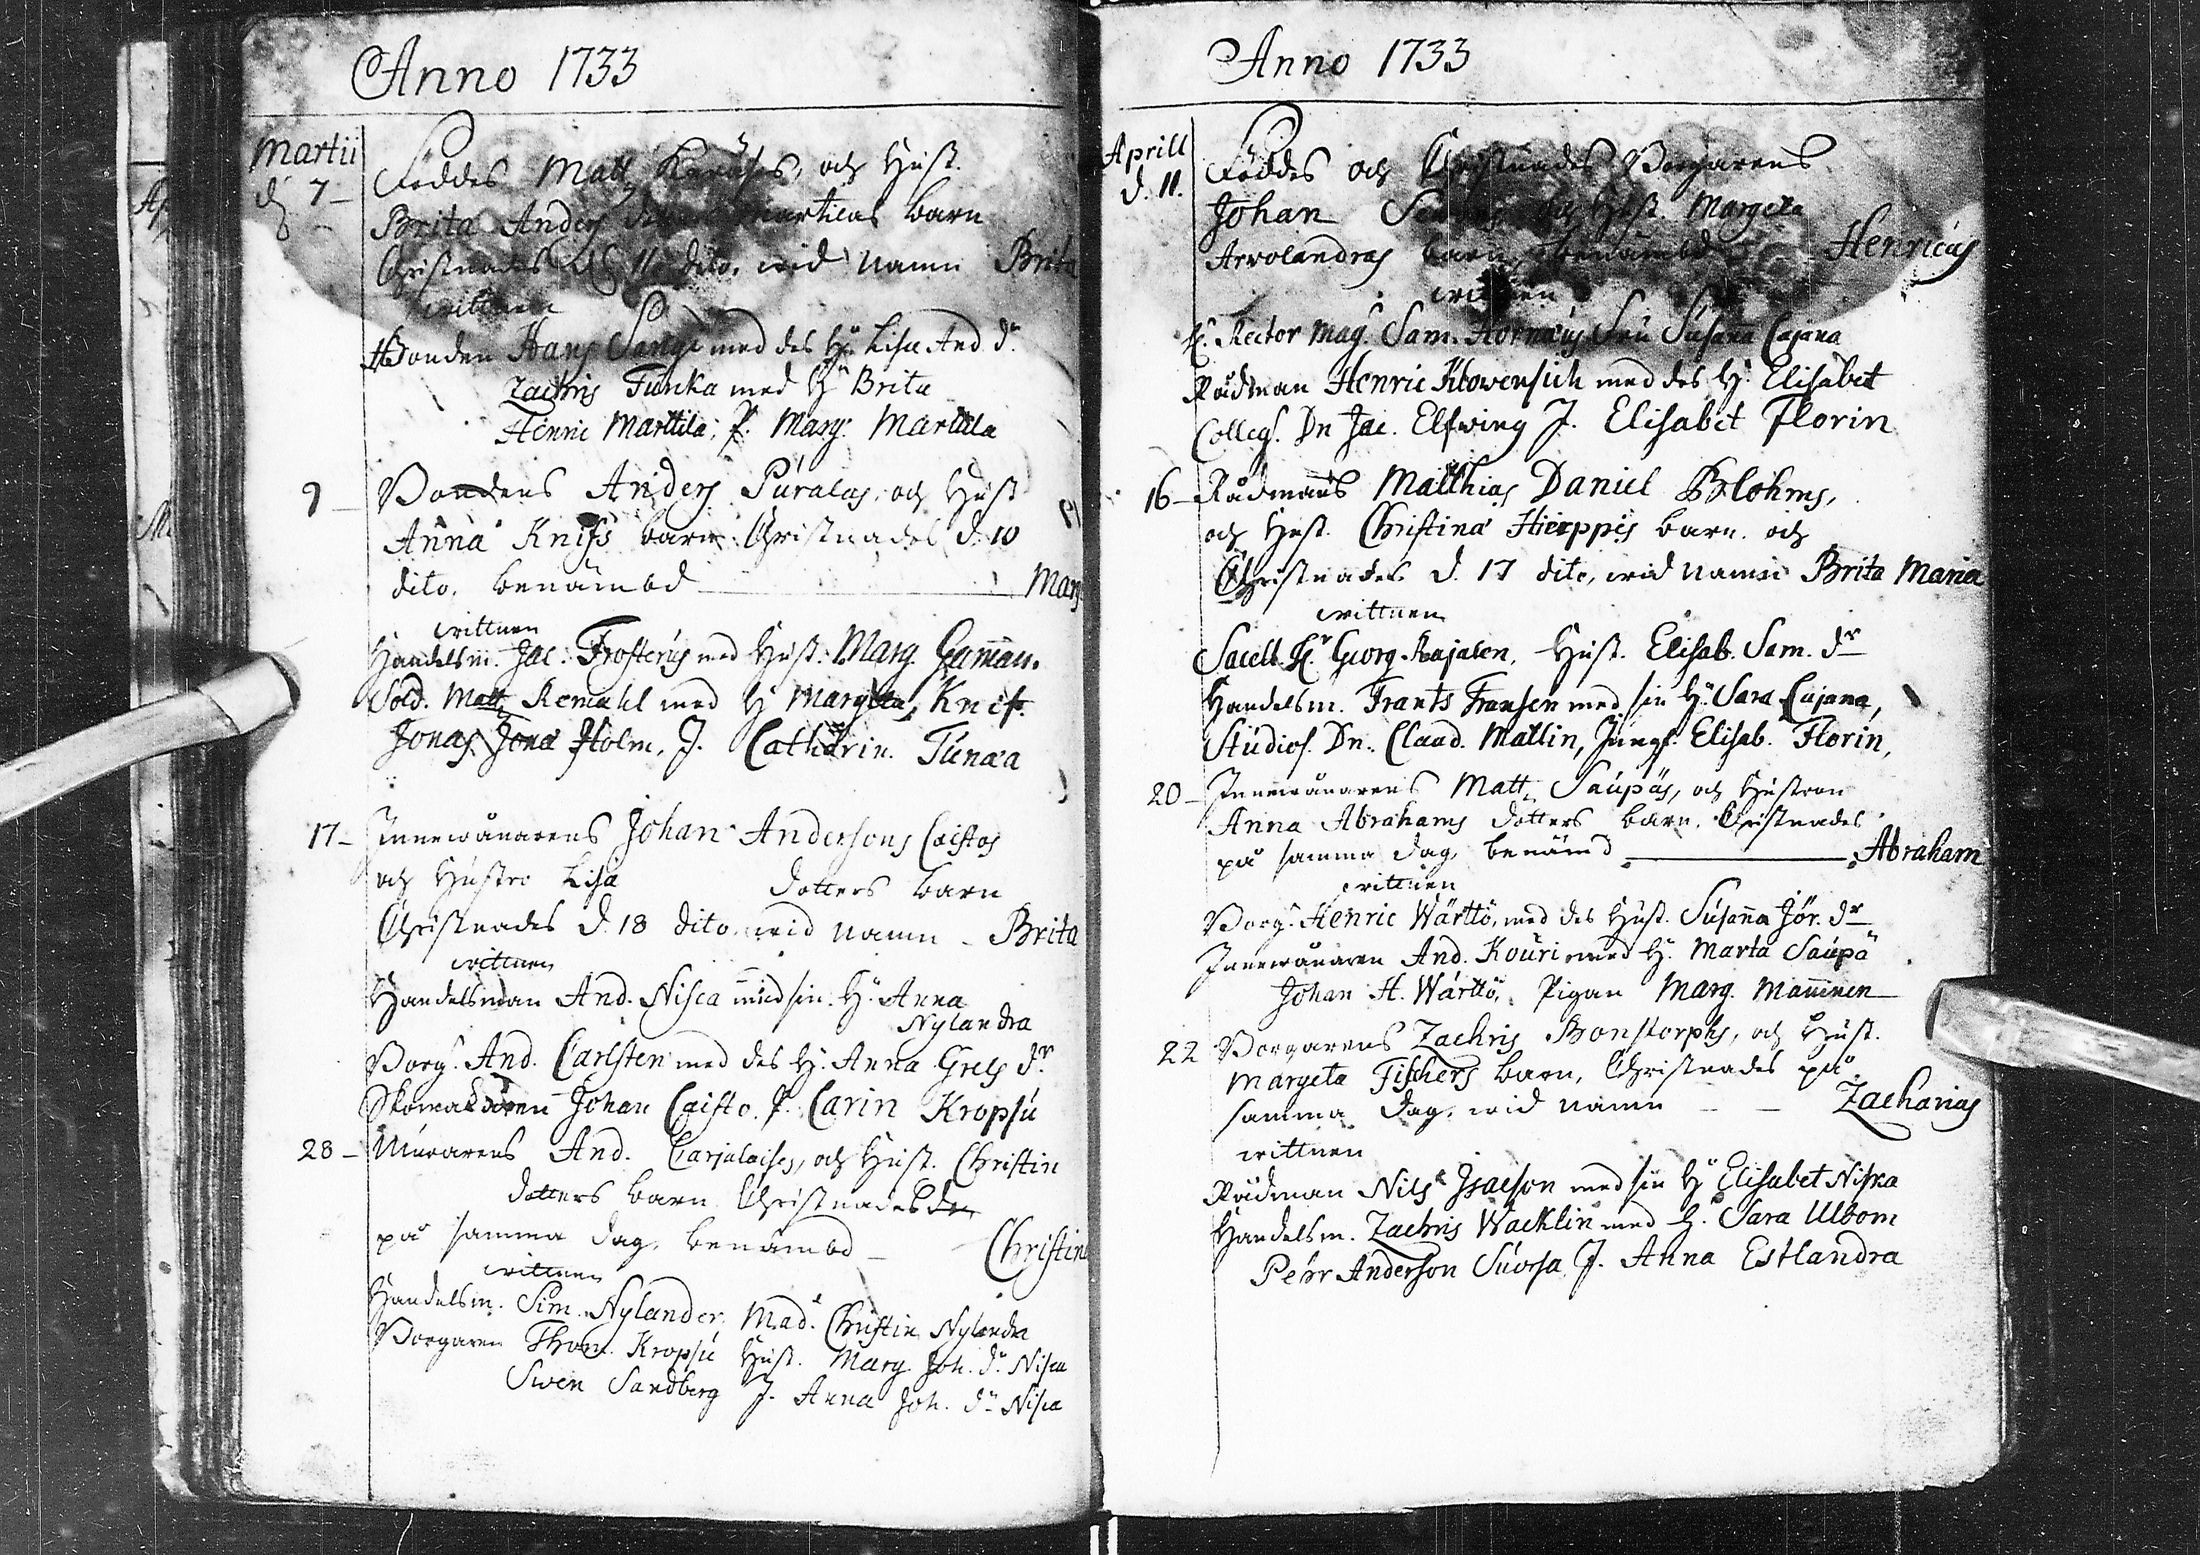 Anno 1733
Martii
d. 7
Föddes Matt och Hust.
Brita Anders barn
Christnades d. 11 dito, wid namn Brita
wittnen
Bonden Hans Lange med des H. Lisa And. dr.
Zachris Funka med H. Brita
Henric Marttila, P. Marg. Marttila
9 Bondens Anders Puralas och Hust
Anna Knifs barn Christnades d. 10
dito, benämbd Marg
wittnen
Handelsm. Jac. Frosterus med Hust. Marg. Gamman.
Sold. Matt Remahl med H. Margeta Knif.
Jonas Jona Holm, J. Catharin. Tunaa
17 Innewånarens Johan Andersons Caistos
och Hustro Lisa dotters barn
Christnades d. 18 dito, wid namn Brita
wittnen
Handelsman And. Nisca med sin H. Anna
Nylandra
Borg. And. Carlsten med des H. Anna Grels dr.
Skomakaren Johan Caisto. P. Carin Kropsu
28 Murarens And. Carjalaises, och Hust. Christin
dotters barn Christnades
på samma dag, benämbd Christin
wittnen
Handelsm. Sim. Nylander, Mad. Christin Nylandra
Borgaren Thom. Kropsu Hust. Marg. Joh. dr. Nisca
Swen Sandberg J. Anna Joh. dr Nisca
Anno 1733
Aprill
d. 11.
Föddes och Christnades Borgarens
Johan och Hust. Margeta
Arvolandras barn, benämbd Henricus
wittnen
H. Rector Mag. Sam. Hornæus Fru Susana Cajana
Rådman Henric Klowensich med des H. Elisabet
Colleg. Dn Jac. Elfwing J. Elisabet Florin
16 Rådmans Matthias Daniel Blohms,
och Hust. Christina Hierppes barn, och
Christnades d. 17 dito, wid namn Brita Maria
wittnen
Sacell. H. Georg Rajalen, Hust. Elisab. Sam. dr
Handelsm. Frants Fransen med sin H. Sara Cajana,
Studios. Dn. Claud. Matlin, Jungf. Elisab. Florin,
20 Innewånarens Matt. Saupäs, och Hustron
Anna Abrahams dotters barn, Christnades
på samma dag, benämd Abraham
wittnen
Borg. Henric Wärttö, med des Hust. Susanna Jör. dr
Innewånaren And. Kouri med H. Marta Saupä
Johan H. Wärttö, Pigan Marg. Manninen
22 Borgarens Zachris Bonstorphs, och Hust.
Margeta Fischers barn, Christnades på
samma dag, wid namn Zacharias
wittnen
Rådman Nils Isacson med sin H. Elisabet Niska
Handelsm. Zachris Wacklin med H. Sara Ulbom
Pehr Anderson Suorsa, J. Anna Estlandra